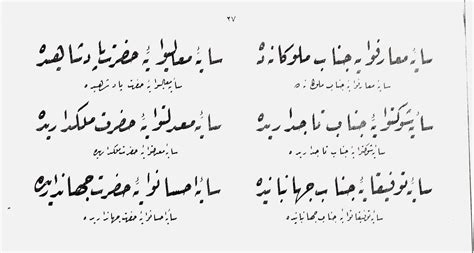 ٢٧
سایۀ معارفوایۀ جناب ملوکانه‌ده سایۀ معالیوایۀ حضرت پادشاهیده
سایۀ معارفوایۀ جناب ملوکانه‌ده سایۀ معالیوایۀ حضرت پادشاهیده
سایۀ شوکتوایۀ جناب تاجداریده سایۀ معدلتوایۀ حضرت ملکداریده
سایۀ شوکتوایۀ جناب تاجداریده سایۀ معدلتوایۀ حضرت ملکداریده
سایۀ توفیقوایۀ جناب جهانبانیده سایۀ احسانوایۀ حضرت جهانداریده
سایۀ توفیقوایۀ جناب جهانبانیده سایۀ احسانوایۀ حضرت جهانداریده